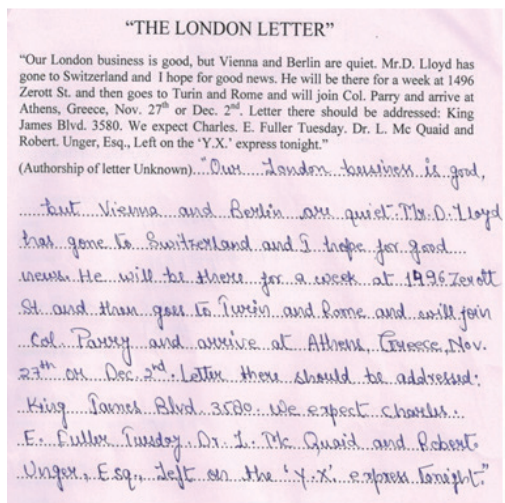 “THE LONDON LETTER”
“Our London business is good, but Vienna and Berlin are quiet. Mr.D. Lloyd has
gone to Switzerland and I hope for good news. He will be there for a week at 1496
Zerott St. and then goes to Turin and Rome and will join Col. Parry and arrive at
Athens, Greece, Nov. 27th or Dec. 2nd. Letter there should be addressed: King
James Blvd. 3580. We expect Charles. E. Fuller Tuesday. Dr. L. Mc Quaid and
Robert. Unger, Esq., Left on the ‘Y.X.’ express tonight.”
(Authorship of letter Unknown)....“Our London business is good,
but Vienna and Berlin are quiet. Mr. D. Lloyd
has gone to Switzerland and I hope for good
news. He will be there for a week at 1496 Zerott
St. and then goes to Turin and Rome and will join
Col. Parry and arrive at Athens, Greece, Nov.
27th or Dec. 2nd. Letter there should be addressed:
King James Blvd. 3580. We expect Charles.
E. Fuller Tuesday. Dr. L. Mc Quaid and Robert.
Unger, Esq., Left on the ‘Y.X’. express tonight.”